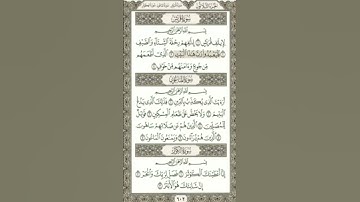 سُورَةُ قُرَيْشٍ
بِسْمِ ٱللَّهِ ٱلرَّحْمَٰنِ ٱلرَّحِيمِ
لِإِيلَٰفِ قُرَيْشٍ ١ إِۦلَٰفِهِمْ رِحْلَةَ ٱلشِّتَآءِ وَٱلصَّيْفِ
٢ فَلْيَعْبُدُوا۟ رَبَّ هَٰذَا ٱلْبَيْتِ ٣ ٱلَّذِىٓ أَطْعَمَهُم
مِّن جُوعٍ وَءَامَنَهُم مِّنْ خَوْفٍۭ ٤
سُورَةُ ٱلْمَاعُونِ
بِسْمِ ٱللَّهِ ٱلرَّحْمَٰنِ ٱلرَّحِيمِ
أَرَءَيْتَ ٱلَّذِى يُكَذِّبُ بِٱلدِّينِ ١ فَذَٰلِكَ ٱلَّذِى يَدُعُّ
ٱلْيَتِيمَ ٢ وَلَا يَحُضُّ عَلَىٰ طَعَامِ ٱلْمِسْكِينِ ٣ فَوَيْلٌ
لِّلْمُصَلِّينَ ٤ ٱلَّذِينَ هُمْ عَن صَلَاتِهِمْ سَاهُونَ
٥ ٱلَّذِينَ هُمْ يُرَآءُونَ ٦ وَيَمْنَعُونَ ٱلْمَاعُونَ ٧
سُورَةُ ٱلْكَوْثَرِ
بِسْمِ ٱللَّهِ ٱلرَّحْمَٰنِ ٱلرَّحِيمِ
إِنَّآ أَعْطَيْنَٰكَ ٱلْكَوْثَرَ ١ فَصَلِّ لِرَبِّكَ وَٱنْحَرْ ٢
إِنَّ شَانِئَكَ هُوَ ٱلْأَبْتَرُ ٣
٦٠٢